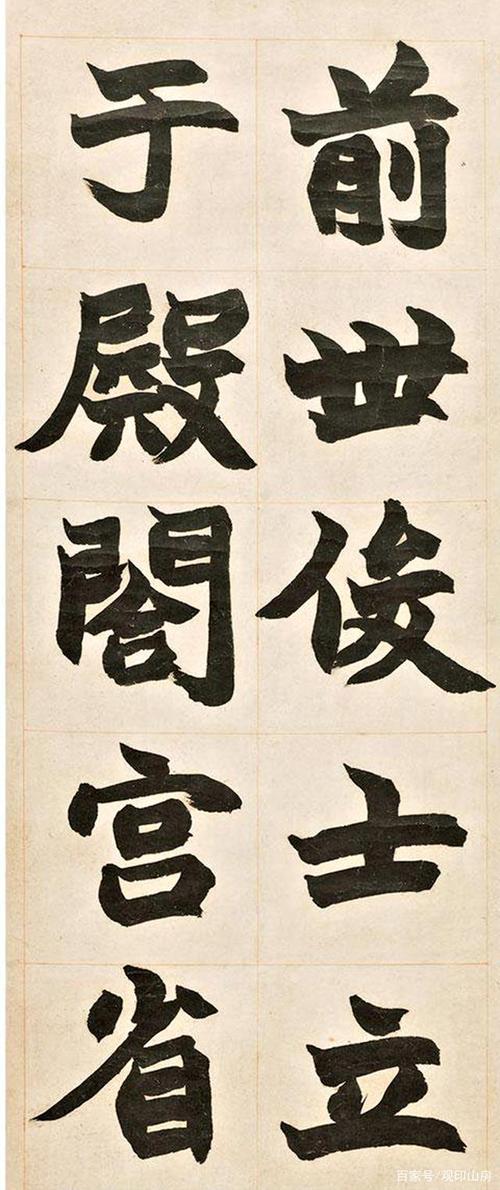 前世俊士立
于殿閣宫省
百家号/观印山房